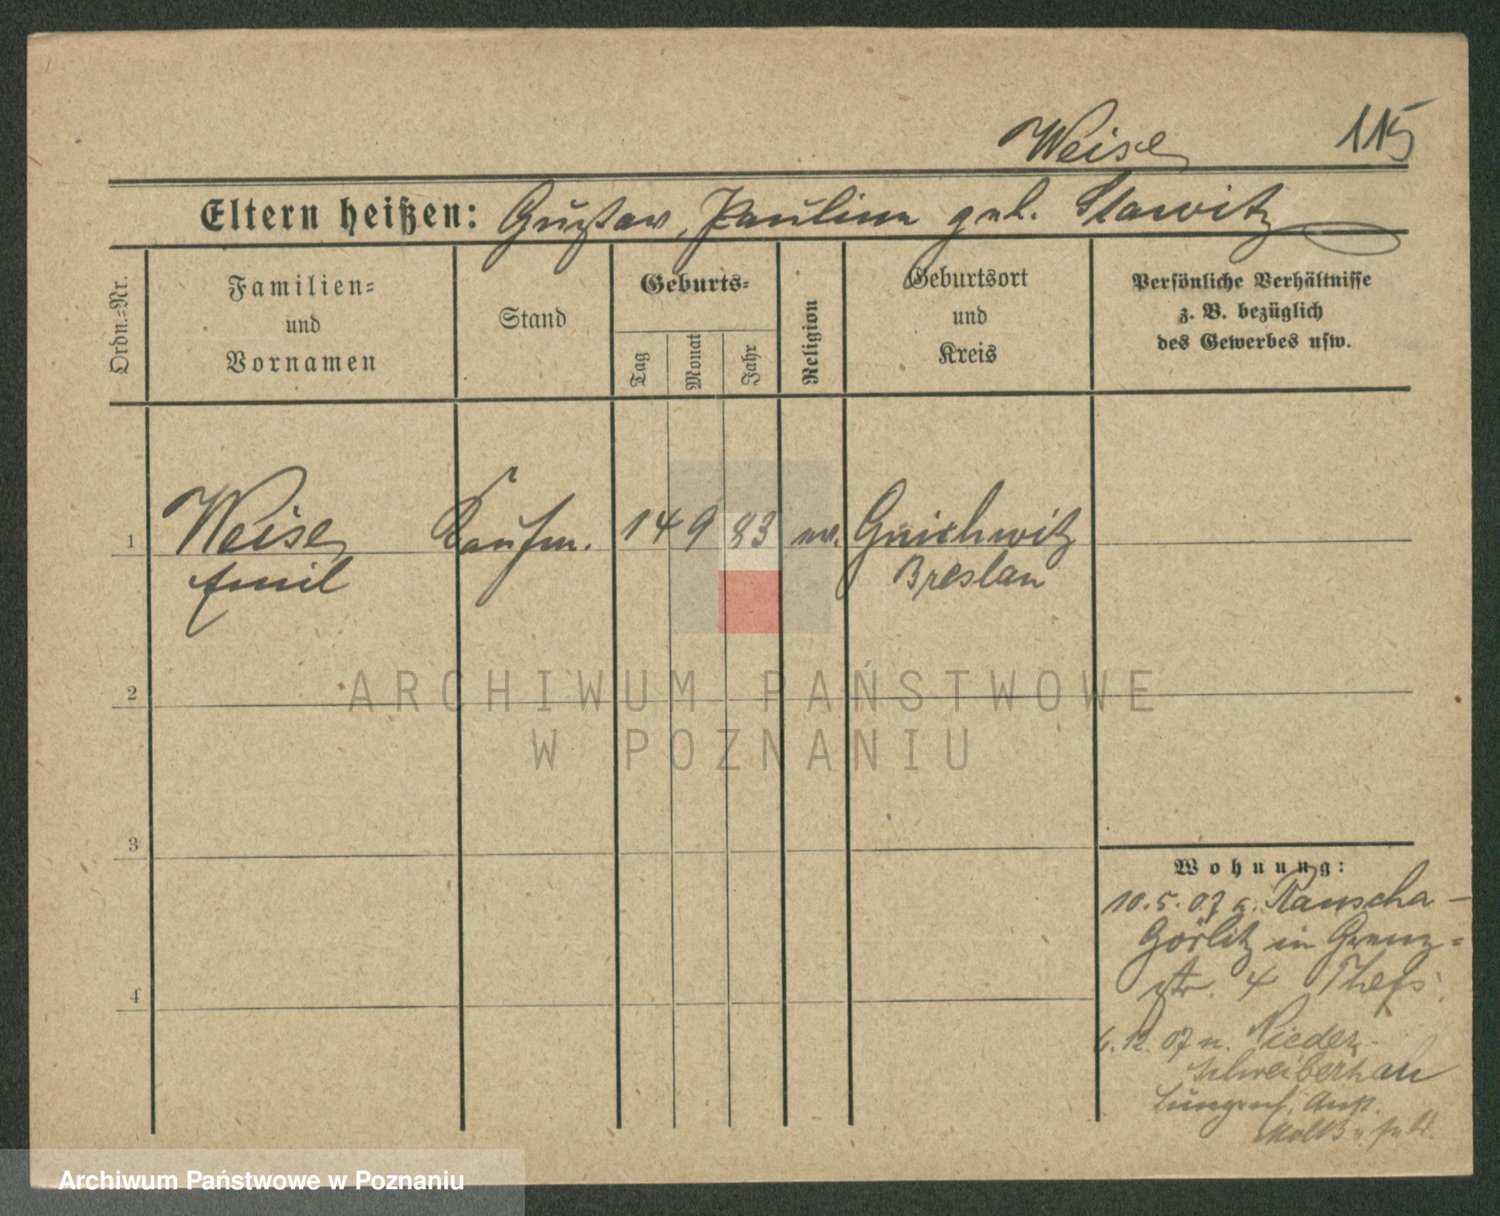 Weise 115
Eltern heißen: Gustav, Pauline geb. Stawitz
Ordn.-Nr.
Familien-
und
Vornamen
Stand
Geburts-
Tag
Monat
Jahr
Religion
Geburtsort
und
Kreis
Persönliche Verhältnisse
z. B. bezüglich
des Gewerbes usw.
1 Weise Kaufm. 14 9 83 ev.
Emil Breslau
2
3
4
Wohnung:
10.5.07 a. Rauscha-
Görlitz in Grenz-
str. 4
6.12.07 n. Nieder-
Schreiberhau
ARCHIWUM PAŃSTWOWE
W POZNANIU
Archiwum Państwowe w Poznaniu